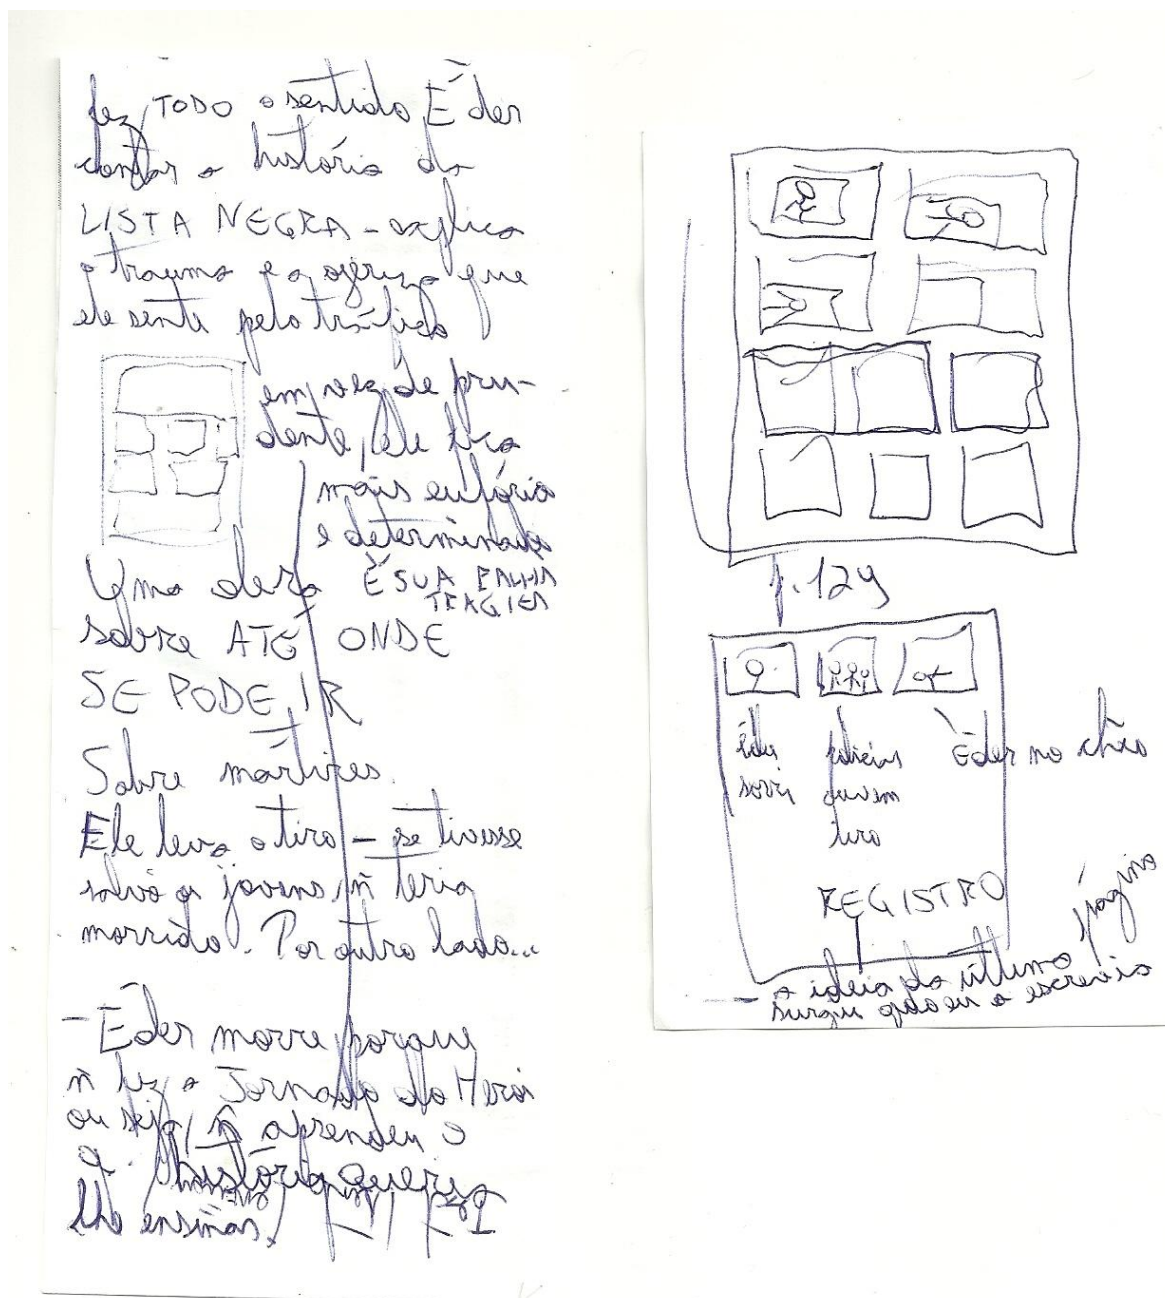 fez TODO o sentido Éder
contar a história da
LISTA NEGRA - explica
o trauma e a ojeriza que
ele sente pelo tráfico
em vez de pru-
dente, ele fica
mais eufórico
e determinado
É SUA FALHA
TRÁGICA
Uma
sobre ATÉ ONDE
SE PODE IR
Sobre mártires.
Ele leva o tiro - se tivesse
salvo os jovens, ñ teria
morrido. Por outro lado...
- Éder morre porque
ñ fez a Jornada do Herói
ou seja, ñ aprendeu o
q. história queria
lhe ensinar.
p. 129
Éder policiais Éder no chão
sorri ouvem
tiro
REGISTRO
- A ideia da última página
surgiu qdo eu a escrevia